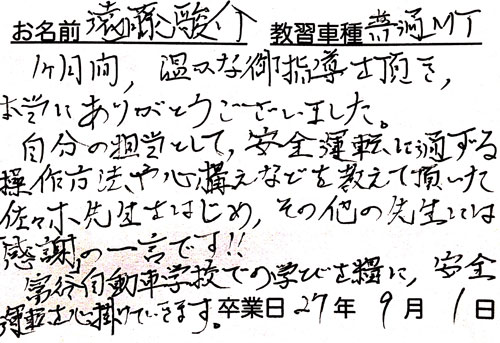 お名前 遠藤駿介 教習車種 普通MT
1ヶ月間，温かな御指導を頂き，
本当にありがとうございました。
自分の担当として，安全運転に通ずる
操作方法や心構えなどを教えて頂いた
佐々木先生をはじめ，その他の先生には
感謝の一言です!!
自動車学校での学びを糧に，安全
運転を心掛けていきます。卒業日 27年 9月 1日